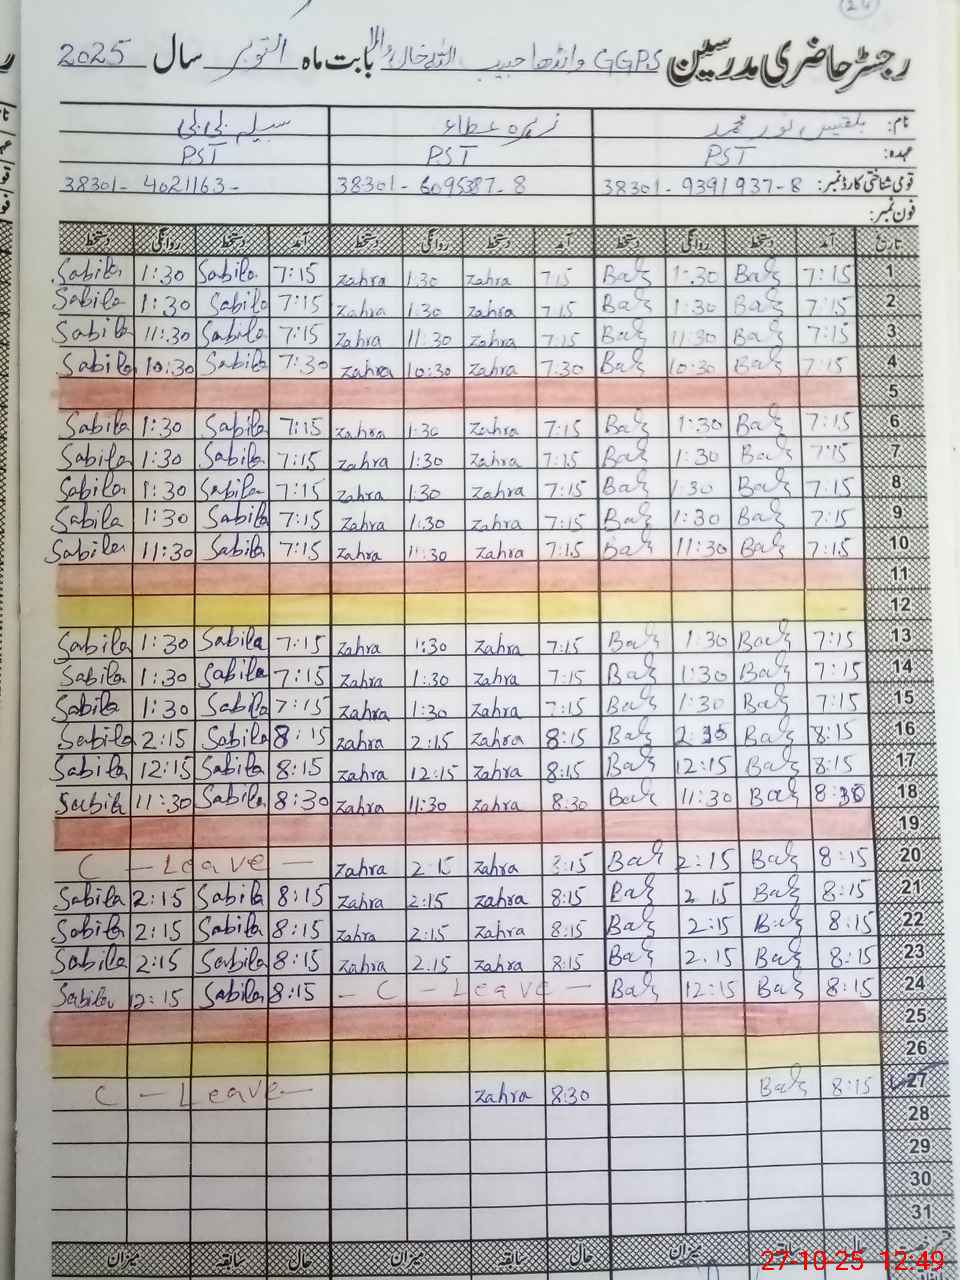 رجسٹر حاضری مدرسین GGPS وانڈھا حبیب اللہ خان بابت ماہ اکتوبر سال 2025
نام: بلقیس نور محمد زہرہ عطاء سبیلہ بی بی
عہدہ: PST PST PST
قومی شناختی کارڈ نمبر: 38301-9391937-8 38301-6095387-8 38301-4021163-
فون نمبر:
تاریخ آمد دستخط روانگی دستخط آمد دستخط روانگی دستخط آمد دستخط روانگی دستخط
1 7:15 1:30 7:15 zahra 1:30 zahra 7:15 Sabila 1:30 Sabila
2 7:15 1:30 7:15 zahra 1:30 zahra 7:15 Sabila 1:30 Sabila
3 7:15 11:30 7:15 zahra 11:30 zahra 7:15 Sabila 11:30 Sabila
4 7:15 10:30 7:30 zahra 10:30 zahra 7:30 Sabila 10:30 Sabila
5
6 7:15 1:30 7:15 zahra 1:30 zahra 7:15 Sabila 1:30 Sabila
7 7:15 1:30 7:15 zahra 1:30 zahra 7:15 Sabila 1:30 Sabila
8 7:15 1:30 7:15 zahra 1:30 zahra 7:15 Sabila 1:30 Sabila
9 7:15 1:30 7:15 zahra 1:30 zahra 7:15 Sabila 1:30 Sabila
10 7:15 11:30 7:15 zahra 11:30 zahra 7:15 Sabila 11:30 Sabila
11
12
13 7:15 1:30 7:15 zahra 1:30 zahra 7:15 Sabila 1:30 Sabila
14 7:15 1:30 7:15 zahra 1:30 zahra 7:15 Sabila 1:30 Sabila
15 7:15 1:30 7:15 zahra 1:30 zahra 7:15 Sabila 1:30 Sabila
16 8:15 8:15 zahra 2:15 zahra 8:15 Sabila 2:15 Sabila
17 8:15 12:15 8:15 zahra 12:15 zahra 8:15 Sabila 12:15 Sabila
18 8:30 11:30 8:30 zahra 11:30 zahra 8:30 Sabila 11:30 Sabila
19
20 8:15 2:15 8:15 zahra 2:15 zahra C - Leave -
21 8:15 2:15 8:15 zahra 2:15 zahra 8:15 Sabila 2:15 Sabila
22 8:15 2:15 8:15 zahra 2:15 zahra 8:15 Sabila 2:15 Sabila
23 8:15 2:15 8:15 zahra 2:15 zahra 8:15 Sabila 2:15 Sabila
24 8:15 12:15 - C - Leave - 8:15 Sabila 12:15 Sabila
25
26
27 8:15 8:30 zahra C - Leave -
28
29
30
31
میزان حال سابقہ میزان حال سابقہ میزان
27-10-25 12:49